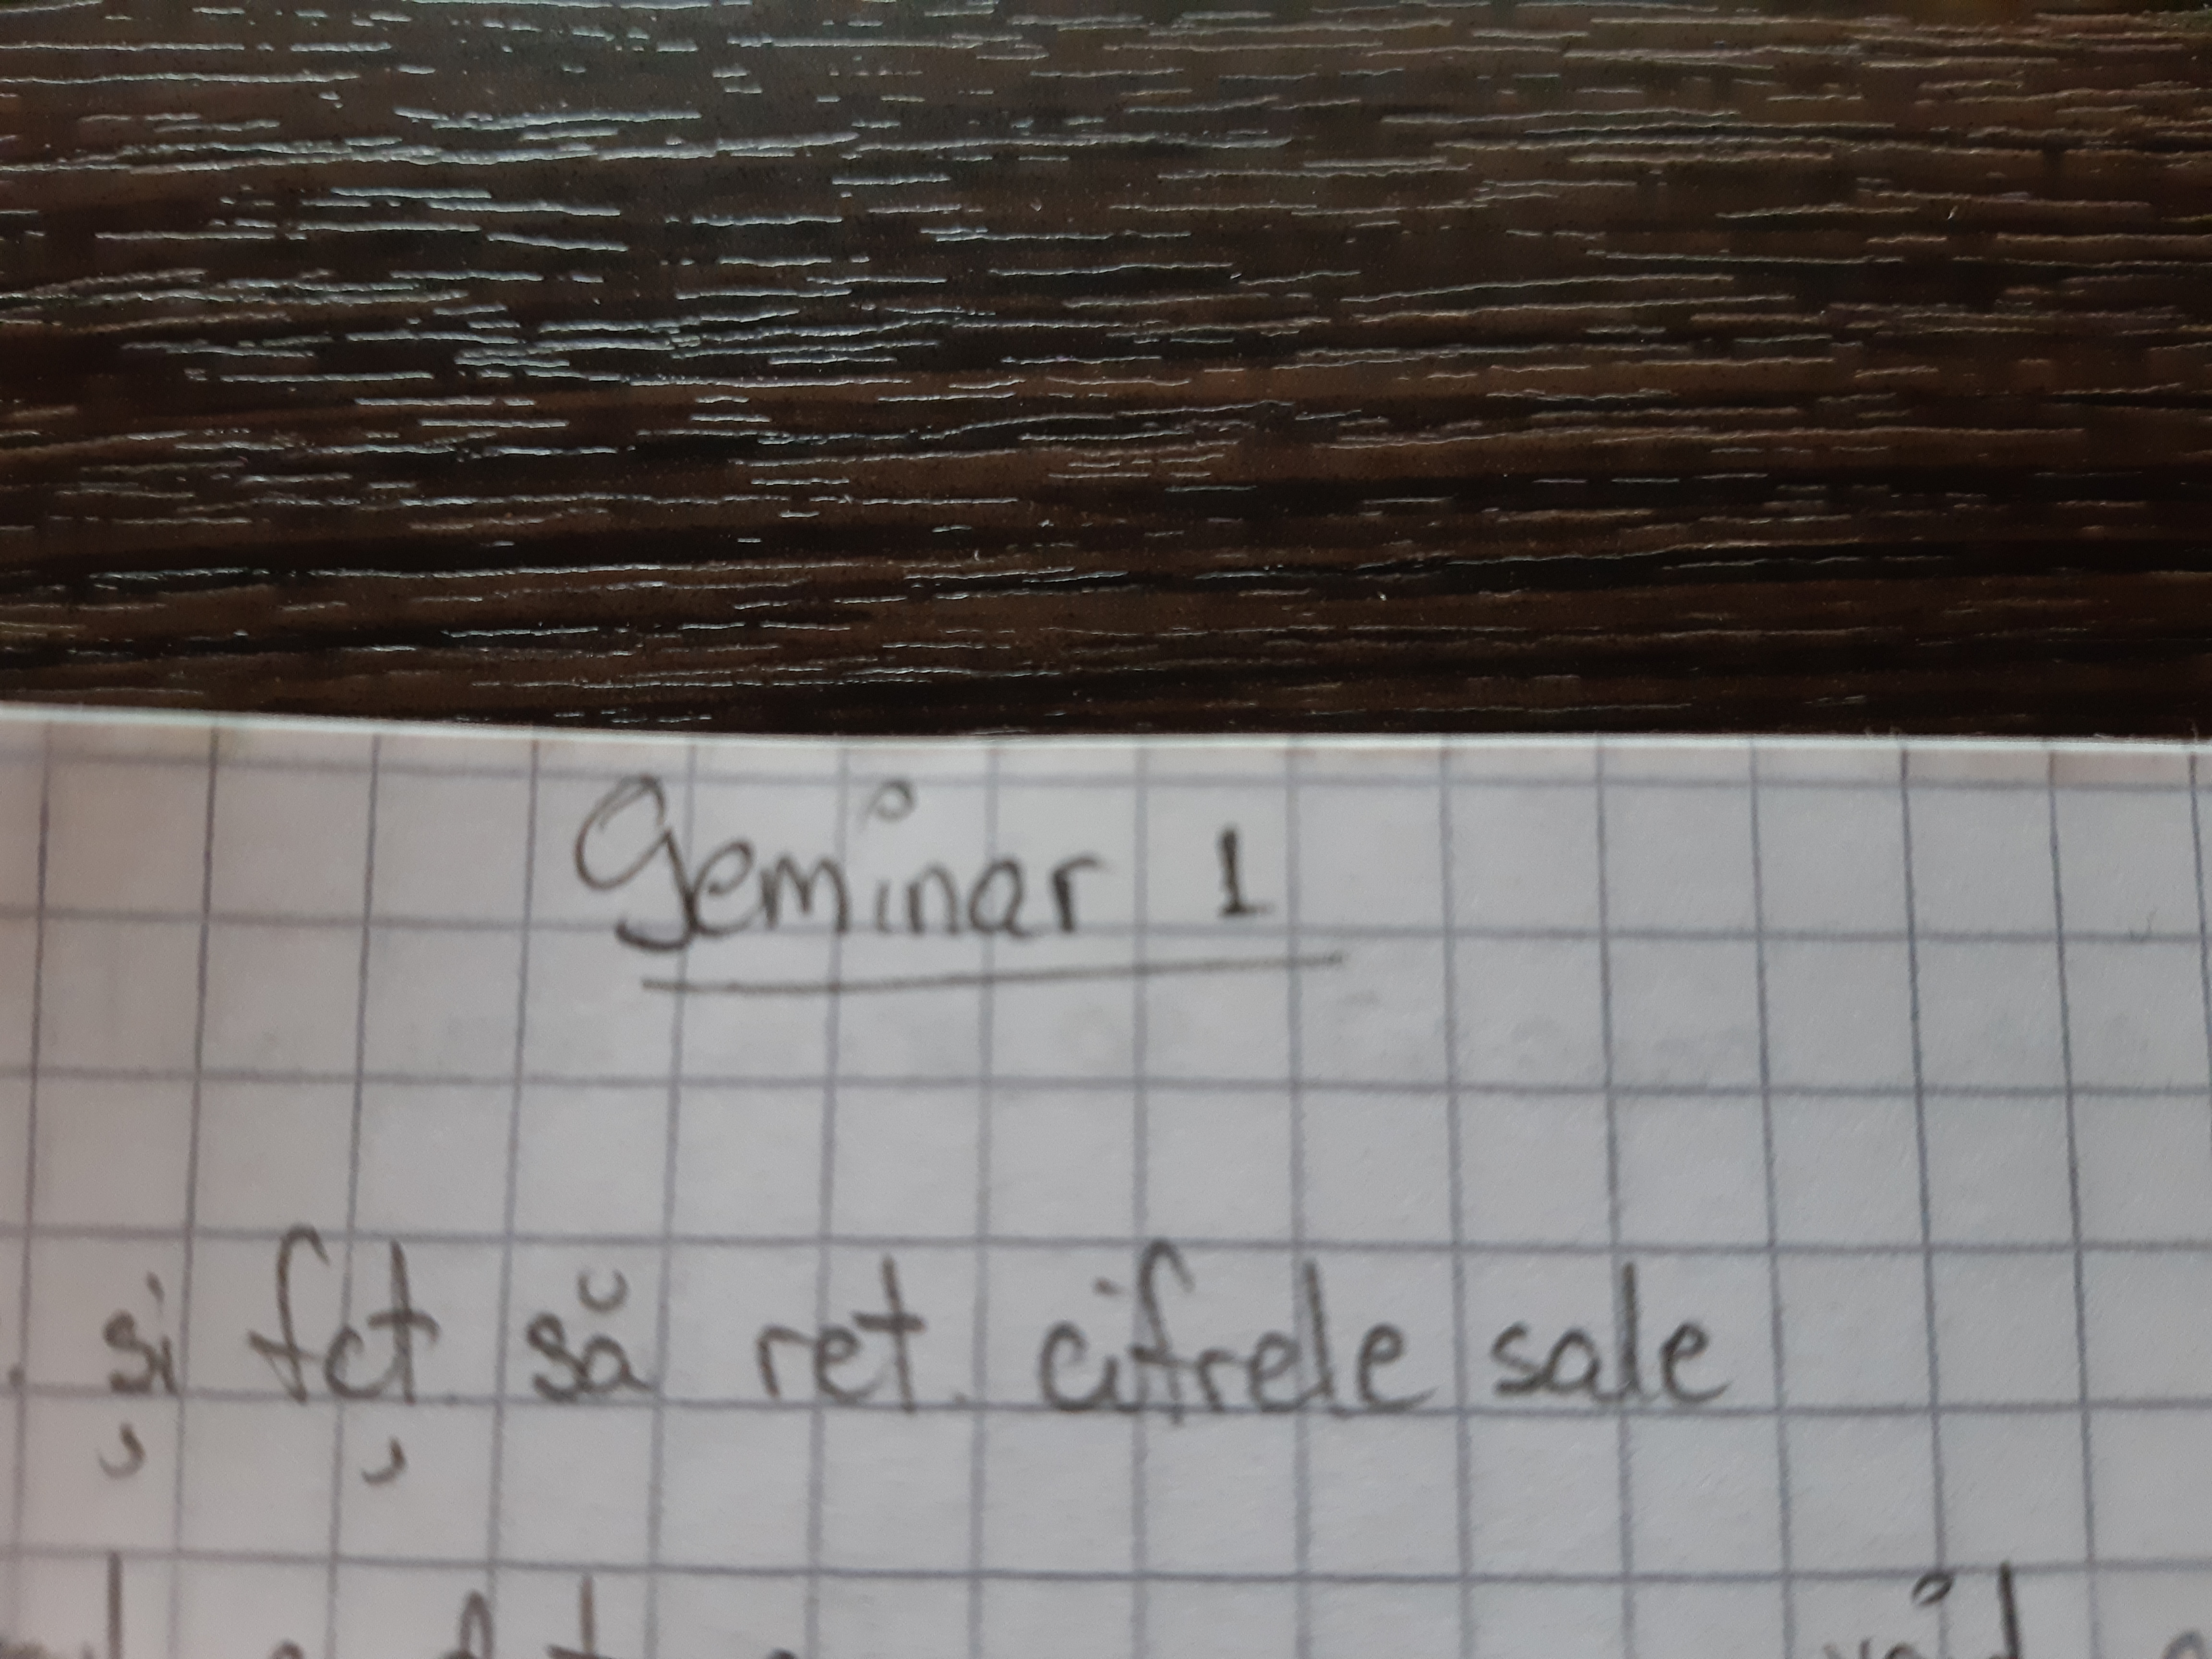 Seminar 1
și fcț. să ret. cifrele sale
void